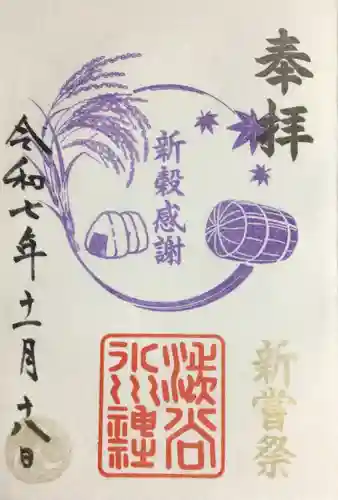 奉拝
新嘗祭
新穀感謝
渋谷
氷川神社
令和七年十一月十八日